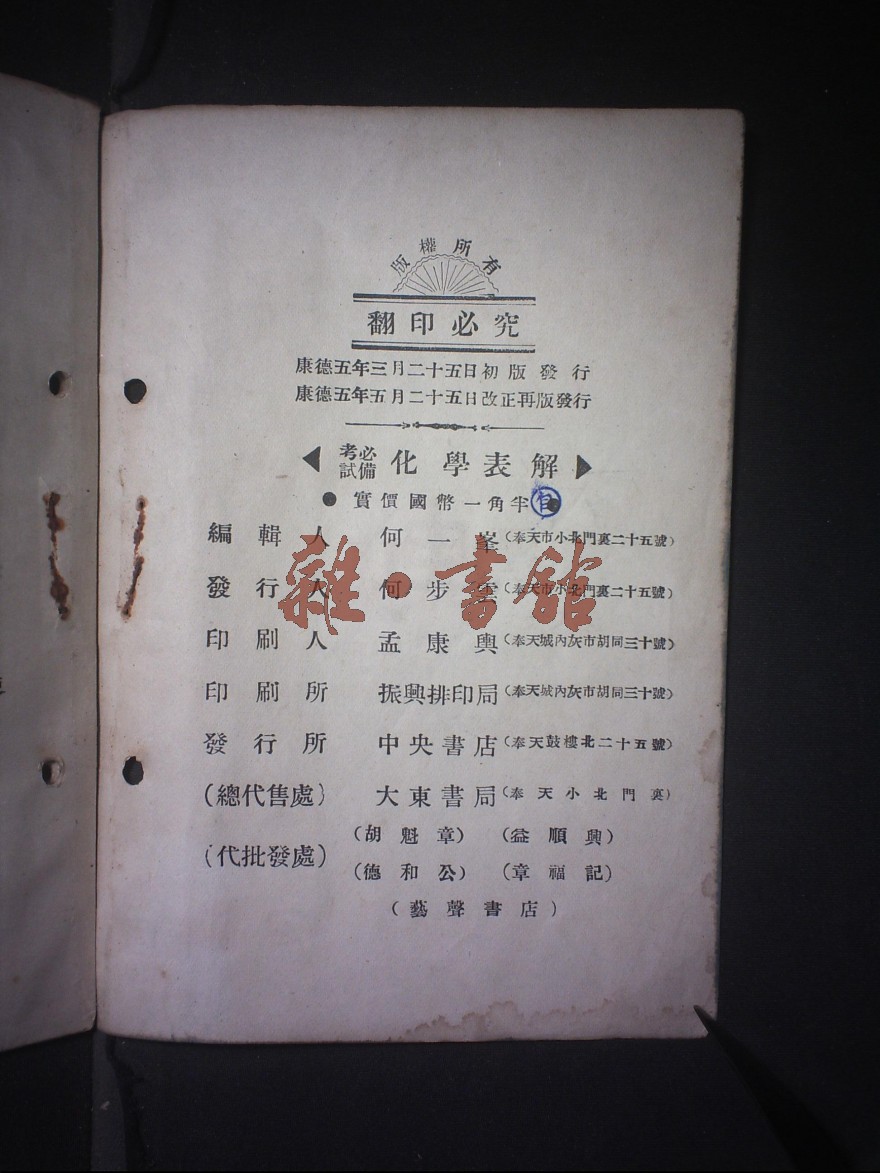 版權所有
翻印必究
康德五年三月二十五日初版發行
康德五年五月二十五日改正再版發行
考試必備 化學表解
實價國幣一角半
編輯人 何一峯 (奉天市小北門裏二十五號)
發行人 何步雲 (奉天市小北門裏二十五號)
雜·書館
印刷人 孟康興 (奉天城內灰市胡同三十號)
印刷所 振興排印局 (奉天城內灰市胡同三十號)
發行所 中央書店 (奉天鼓樓北二十五號)
(總代售處) 大東書局 (奉天小北門裏)
(代批發處) (胡魁章) (益順興)
(德和公) (章福記)
(藝聲書店)